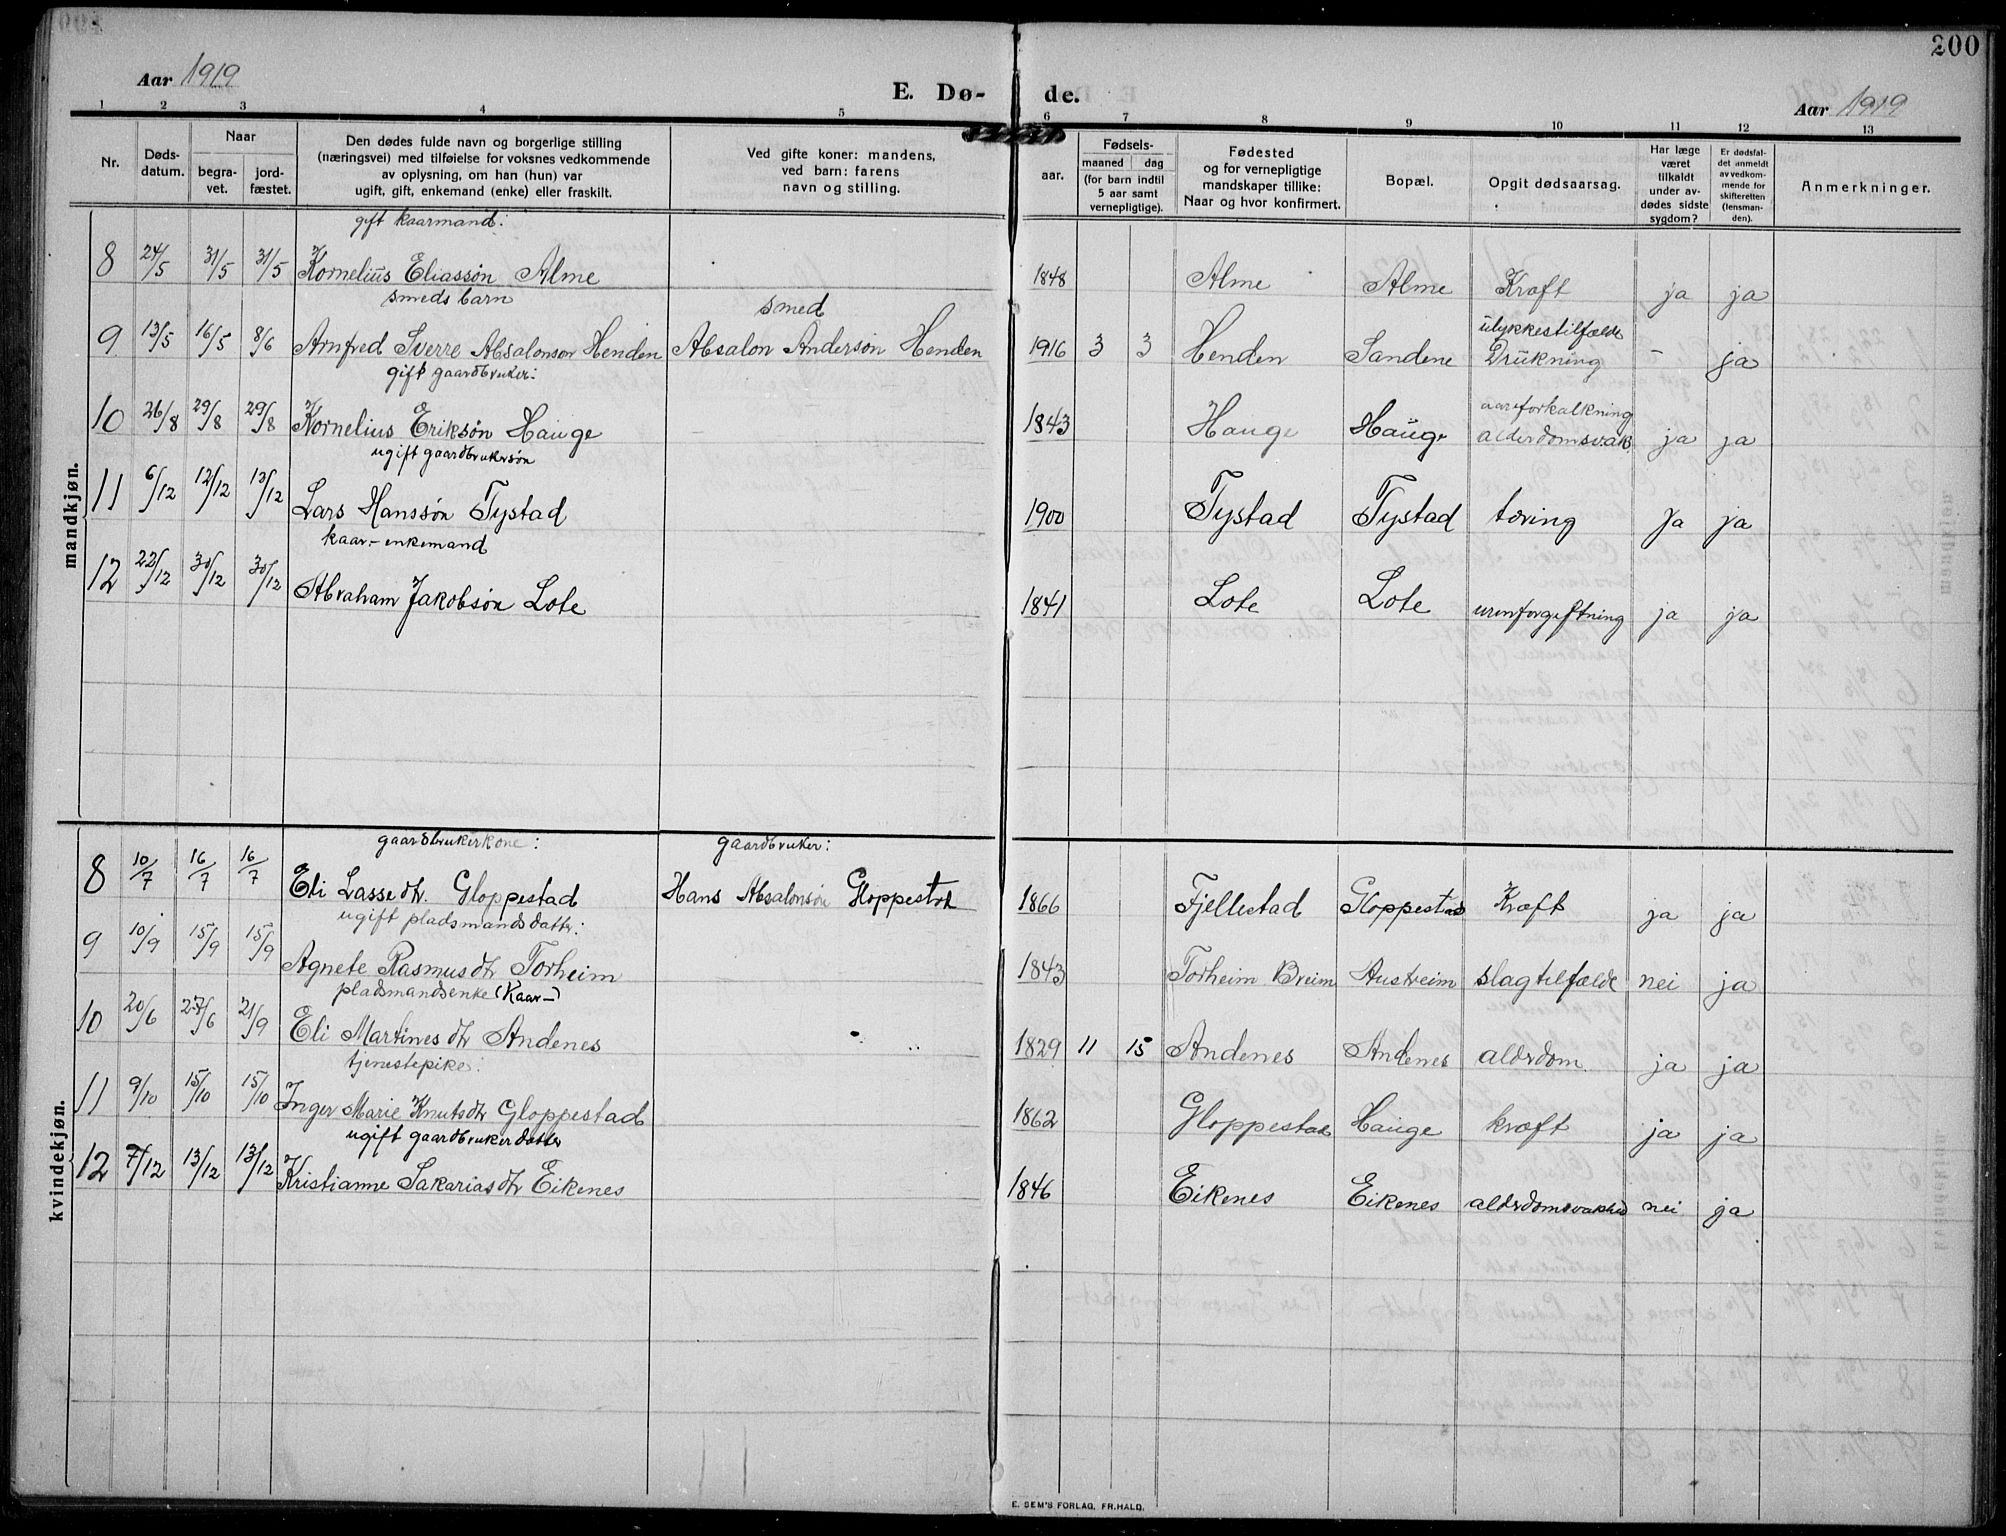 200
Aar 1919
E. Dø- de.
Aar 1919
1 2 3 4 5 6 7 8 9 10 11 12 13
Nr.
Døds-
datum.
Naar
begra-
vet.
jord-
fæstet.
Den dødes fulde navn og borgerlige stilling
(næringsvei) med tilføielse for voksnes vedkommende
av oplysning, om han (hun) var
ugift, gift, enkemand (enke) eller fraskilt.
Ved gifte koner: mandens,
ved barn: farens
navn og stilling.
aar.
Fødsels-
maaned dag
(for barn indtil
5 aar samt
vernepligtige).
Fødested
og for vernepligtige
mandskaper tillike:
Naar og hvor konfirmert.
Bopæl.
Opgit dødsaarsag.
Har læge
været
tilkaldt
under av-
dødes sidste
sygdom?
Er dødsfal-
det anmeldt
av vedkom-
mende for
skifteretten
(lensman-
den).
Anmerkninger.
mandkjøn.
gift kaarmand:
8 24/5 31/5 31/5 Kornelius Eliassøn Alme 1848 Alme Alme Kræft ja ja
smeds barn smed ulykkestilfælde
9 13/5 16/5 8/6 Arnfred Sverre Absalonson Henden Absalon Andersøn Henden 1916 3 3 Henden Sandene Drukning - ja
gift gaardbruker: aareforkalkning
10 26/8 29/8 29/8 Kornelius Eriksøn Hauge 1843 Hauge Hauge alderdomsvak ja ja
ugift gaardbrukersøn
11 6/12 12/12 13/12 Lars Hanssøn Tystad 1900 Tystad Tystad tæring ja ja
kaar-enkemand
12 22/12 30/12 30/12 Abraham Jakobsøn Lote 1841 Lote Lote urinforgiftning ja ja
kvindekjøn.
gaardbrukerkone: gaardbruker:
8 10/7 16/7 16/7 Eli Lassedtr. Gloppestad Hans Absalonsøn Gloppestad 1866 Fjellestad Gloppestad Kræft ja ja
ugift pladsmandsdatter:
9 10/9 15/9 15/9 Agnete Rasmusdtr Torheim 1843 Torheim Breim Austreim slagtilfælde nei ja
pladsmandsenke (Kaar-)
10 20/6 27/6 21/9 Eli Martinesdtr Andenes 1829 11 15 Andenes Andenes alderdom. ja ja
tjenestepike:
11 9/10 15/10 15/10 Inger Marie Knutsdtr Gloppestad 1862 Gloppestad Hauge kræft ja ja
ugift gaardbrukerdatter
12 7/12 13/12 13/12 Kristianne Sakariasdtr Eikenes 1846 Eikenes Eikenes alderdomsvakhed nei ja
E. SEM'S FORLAG, FR.HALD.